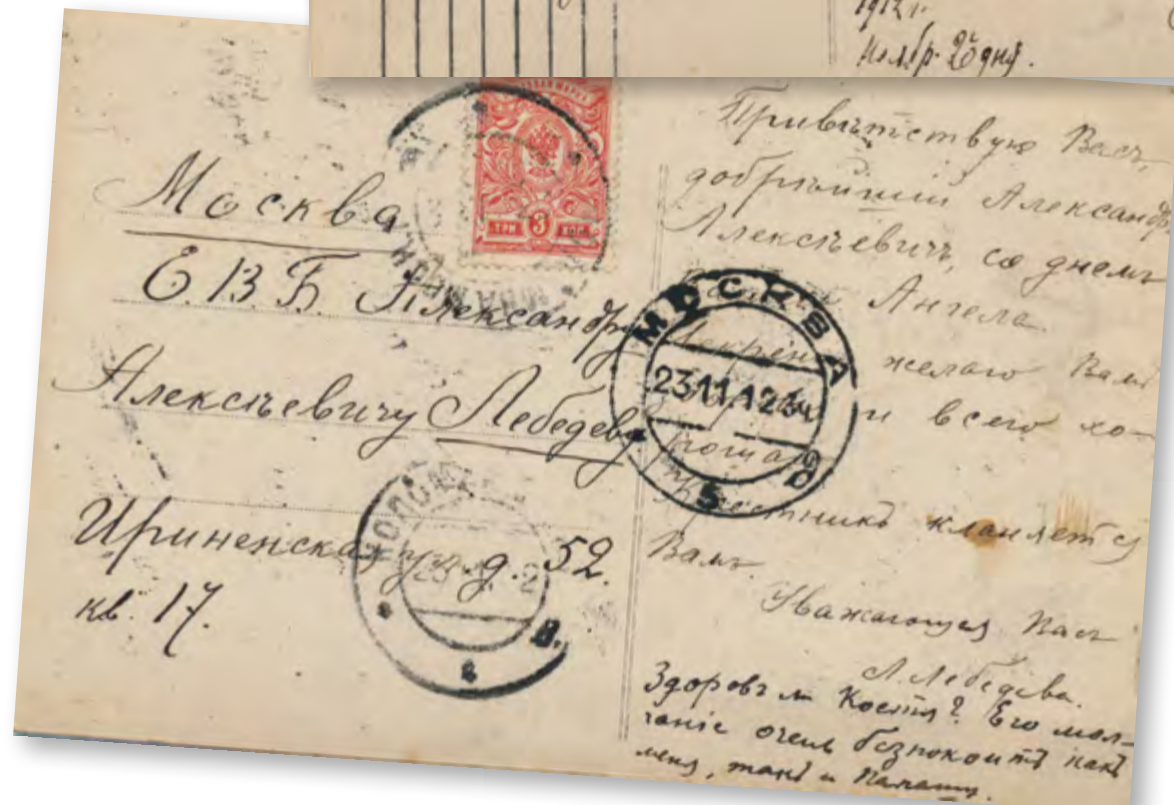 1912 г.
Ноябр. 23 дня.
Москва
Е. В. Б. Александру
Алексѣевичу Лебедеву
Ириненская ул. д. 52.
кв. 17.
ТРИ 3 КОП.
МОСКВА
23.11.12
5
Привѣтствую Васъ,
добрѣйшій Александръ
Алексѣевичъ, со днемъ
Ангела
Искренно желаю Вамъ
и всего хо-
рошаго
Крестникъ кланяется
Вамъ.
Уважающая Васъ
Л. Лебедева.
Здоровъ ли Костя? Его мол-
чаніе очень безпокоитъ какъ
меня, такъ и Мамашу.